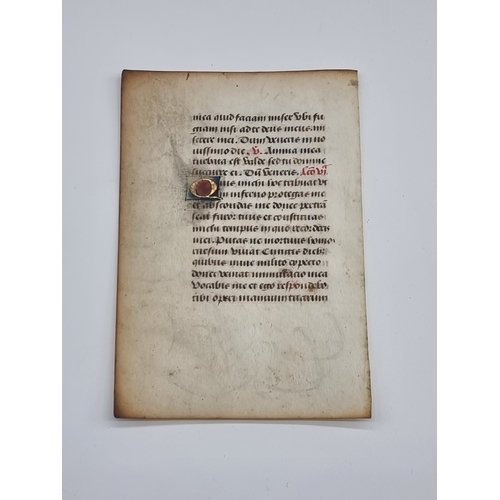 mea quid faciam miser vbi fu
giam nisi ad te deus meus mi
serere mei. Dum veneris in no
uissimo die. V. Anima mea
turbata est valde sed tu domine
succurre ei. Dū veneris. Lco vi
Quis michi hoc tribuat vt
in inferno protegas me
et abscondas me donec pertrā
seat furor tuus et constituas
michi tempus in quo recorderis
mei. Putas ne mortuus homo
rursum viuat Cunctis dieb
quibus nunc milito expecto
donec veniat immutacio mea
Vocabis me et ego respondebo
tibi operi manuum tuarum